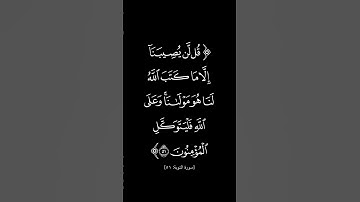 ﴿ قُل لَّن يُصِيبَنَآ
إِلَّا مَا كَتَبَ ٱللَّهُ
لَنَا هُوَ مَوْلَىٰنَا ۚ وَعَلَى
ٱللَّهِ فَلْيَتَوَكَّلِ
ٱلْمُؤْمِنُونَ ٥١ ﴾
[سورة التوبة: ٥١]